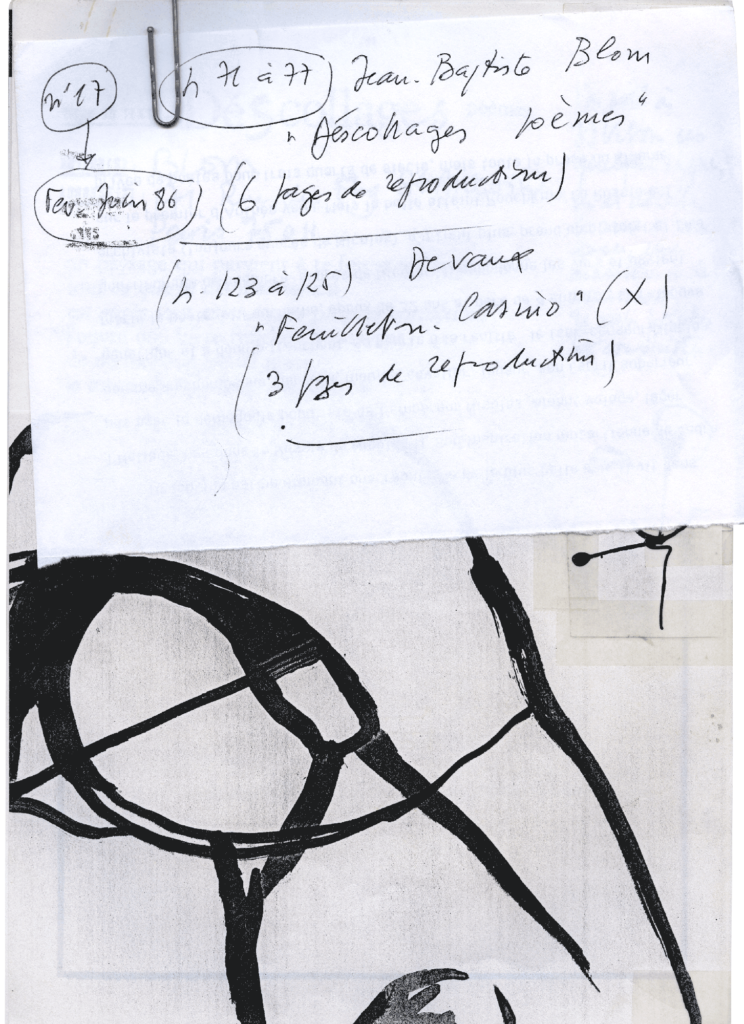 n° 17
p 71 à 77 Jean-Baptiste Blom
"Déscollages poèmes"
Fev. Juin 86 (6 pages de reproductions)
(p. 123 à 125) Devaux
"Feuilleton. Casino" (X)
3 pges de reproductions)